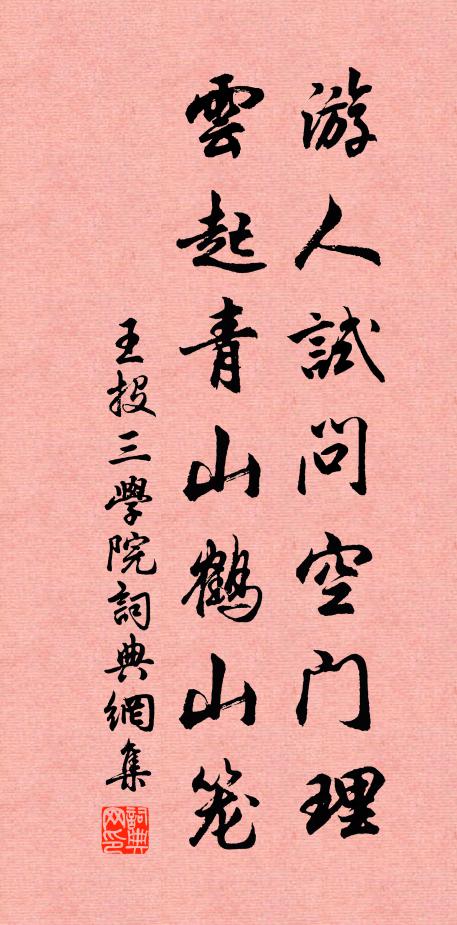 游人試問空门理
雲起青山鶴山笼
王投三學院詞典網集
詞典
网印